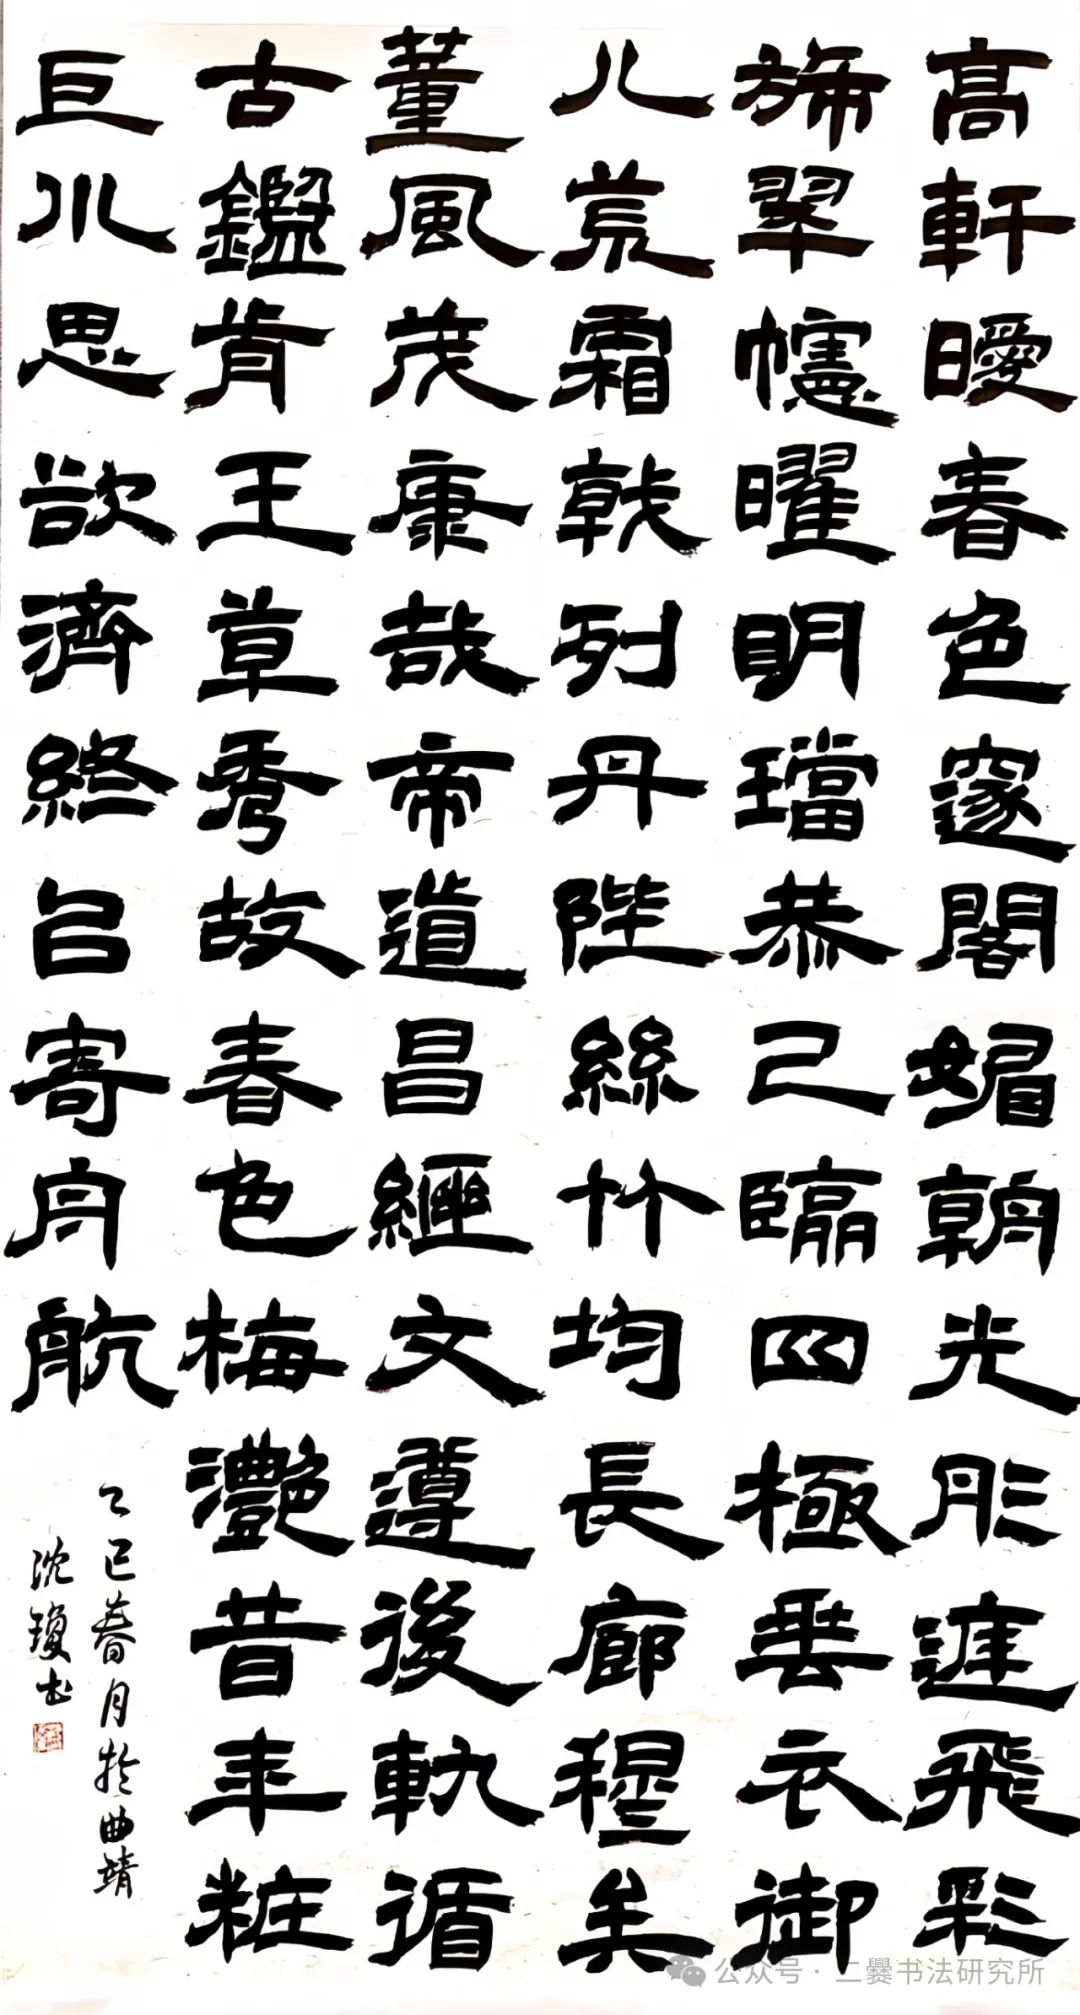 高軒曖春色邃閣媚朝光彤庭飛彩
旆翠幰曜明璫恭己臨四極垂衣御
八荒霜戟列丹陛絲竹均長廊穆矣
董風茂康哉帝道昌繼文遵後軌循
古鑑前王草秀故春色梅灩昔年粧
巨川思欲濟終以寄舟航
乙巳春月於曲靖
沈瓊书
公众号·二爨书法研究所